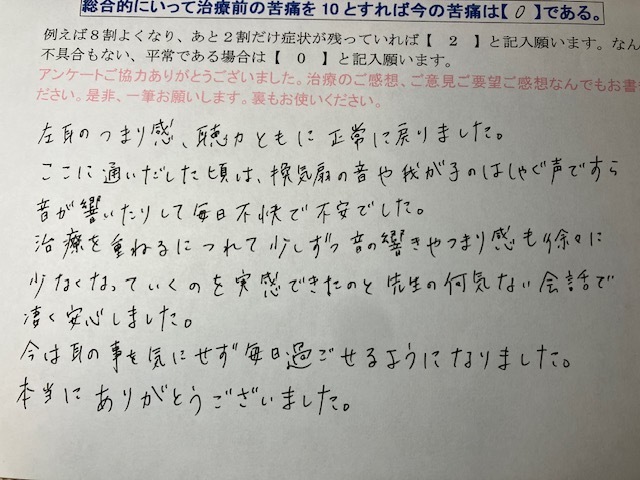 総合的にいって治療前の苦痛を10とすれば今の苦痛は【 0 】である。
例えば8割よくなり、あと2割だけ症状が残っていれば【 2 】と記入願います。なん
不具合もない、平常である場合は【 0 】と記入願います。
アンケートご協力ありがとうございました。治療のご感想、ご意見ご要望ご感想なんでもお書き
ださい。是非、一筆お願いします。裏もお使いください。
左耳のつまり感、聴力ともに正常に戻りました。
ここに通いだした頃は、換気扇の音や我が子のはしゃぐ声ですら
音が響いたりして毎日不快で不安でした。
治療を重ねるにつれて少しずつ音の響きやつまり感も徐々に
少なくなっていくのを実感できたのと先生の何気ない会話で
凄く安心しました。
今は耳の事を気にせず毎日過ごせるようになりました。
本当にありがとうございました。